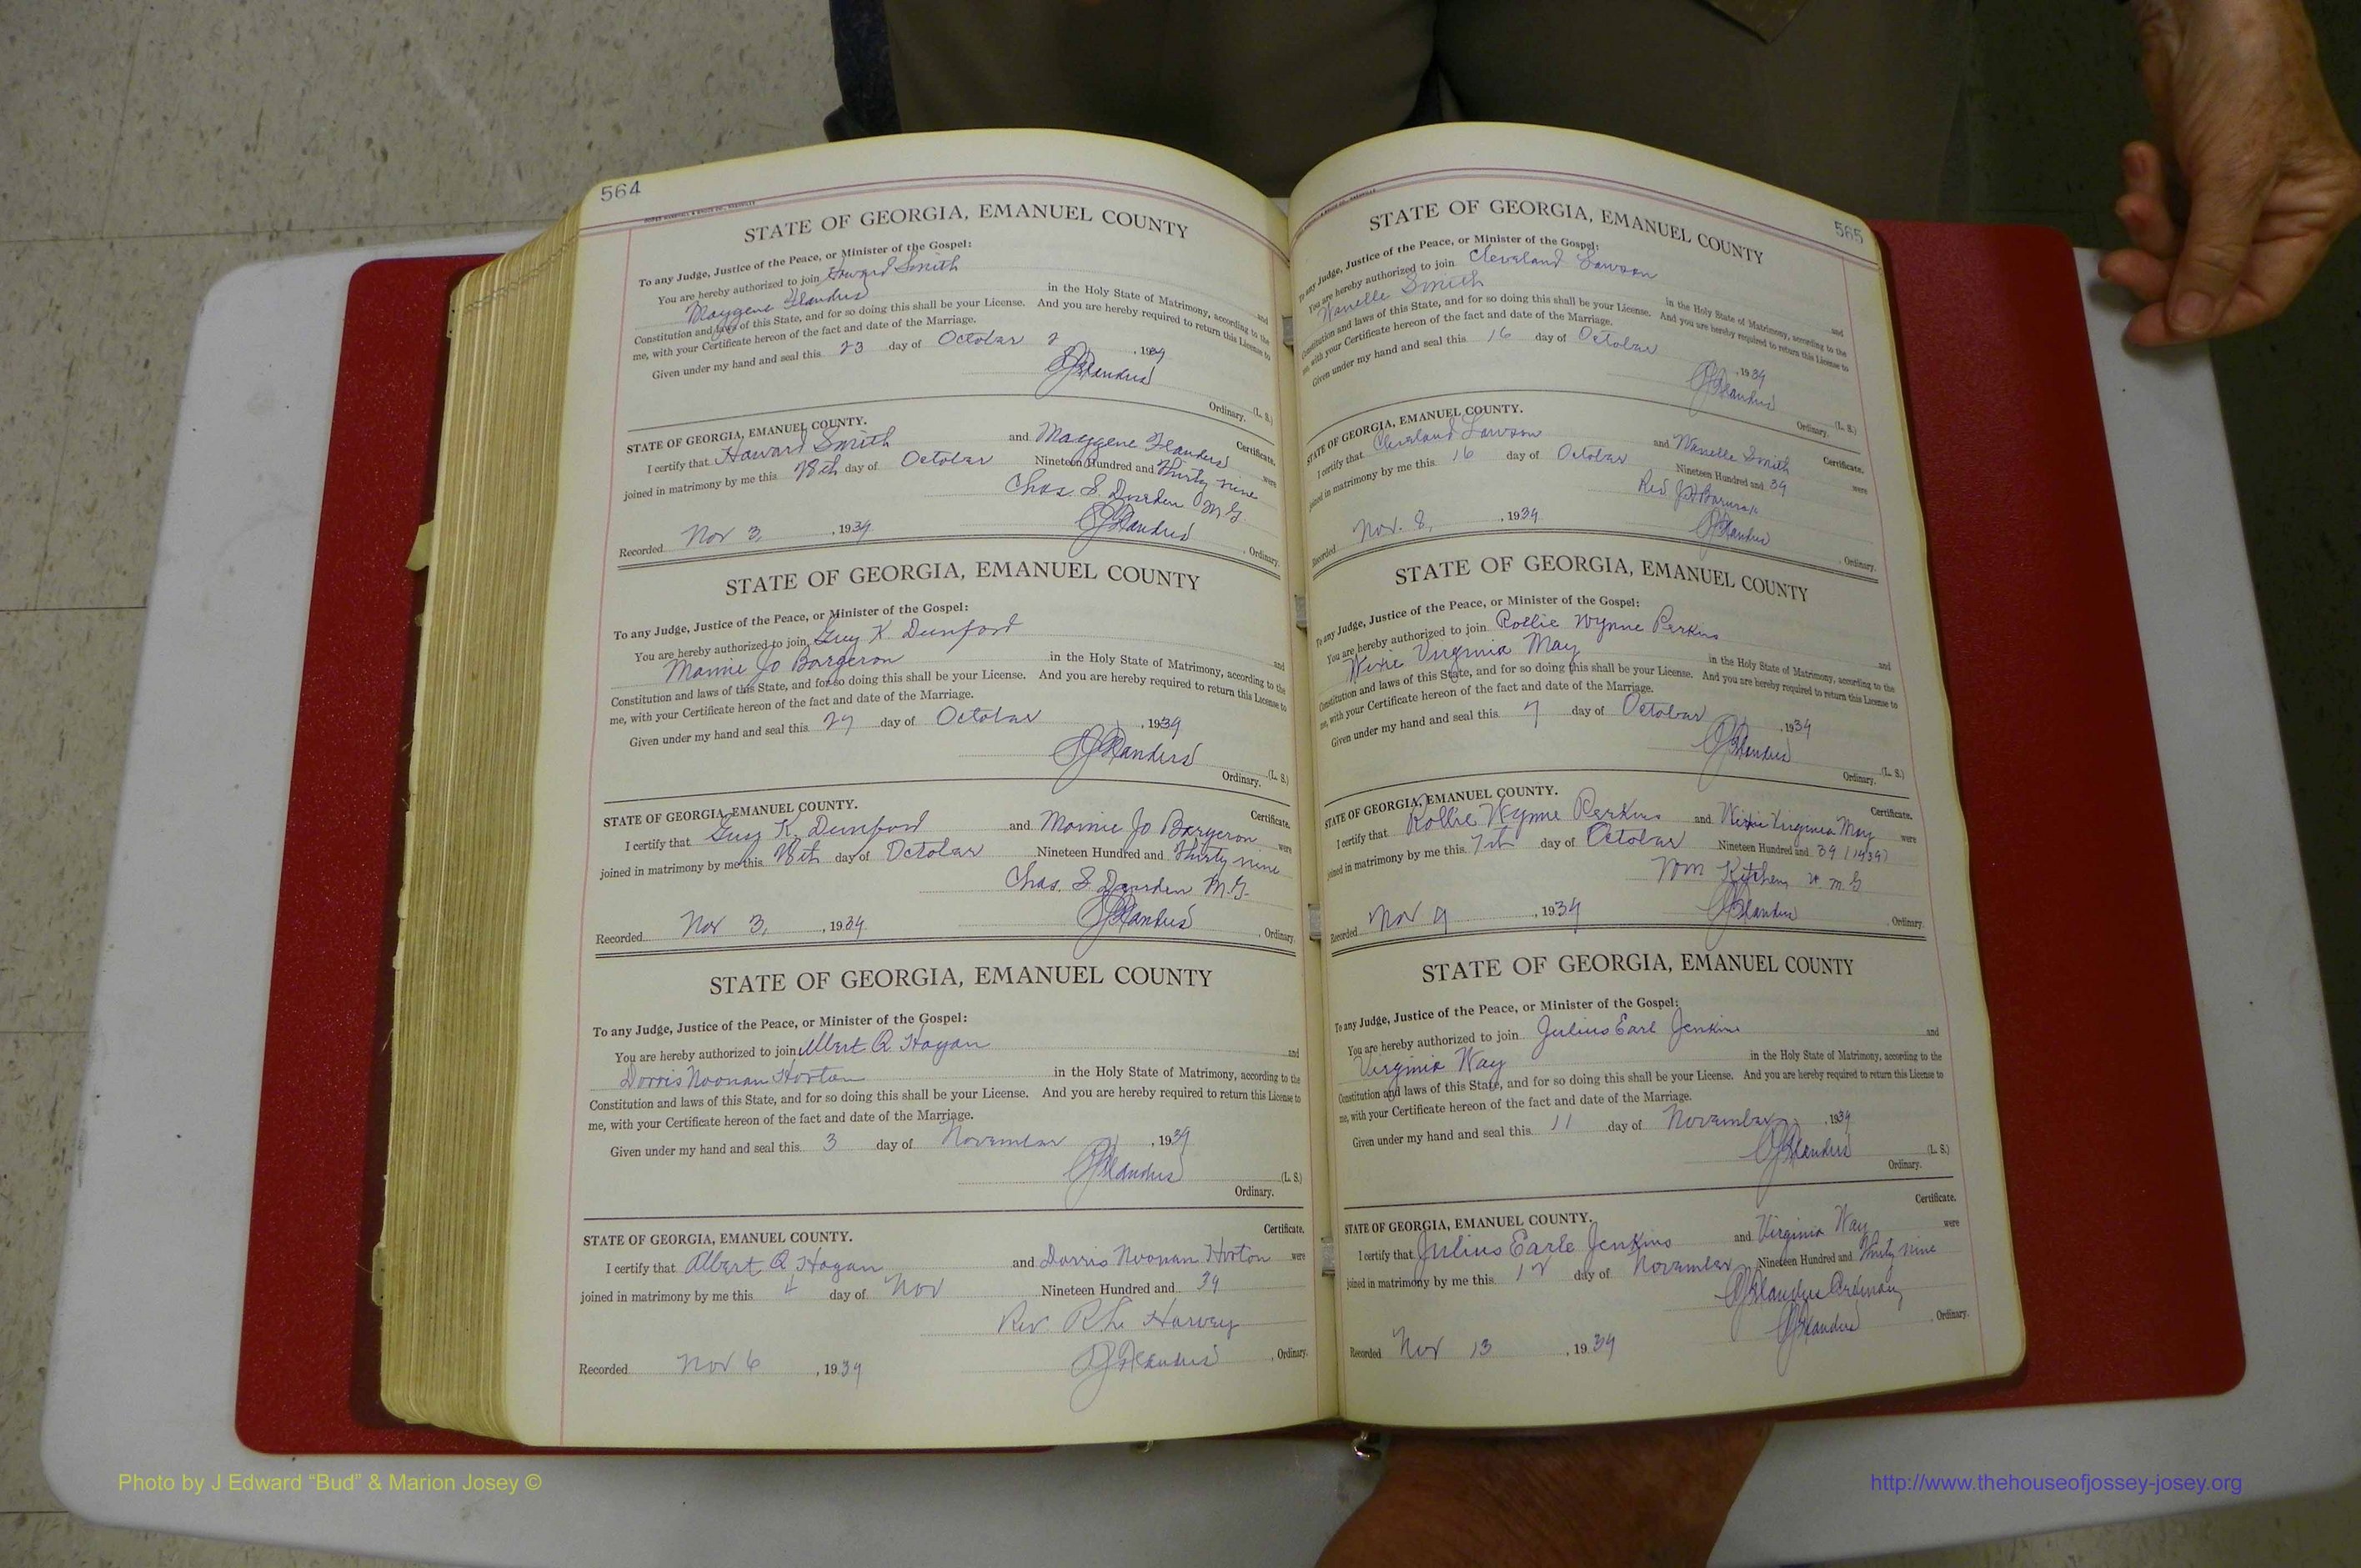 564
STATE OF GEORGIA, EMANUEL COUNTY
To any Judge, Justice of the Peace, or Minister of the Gospel:
You are hereby authorized to join Howard Smith and
Maygene Flanders in the Holy State of Matrimony, according to the
Constitution and laws of this State, and for so doing this shall be your License. And you are hereby required to return this License to
me, with your Certificate hereon of the fact and date of the Marriage.
Given under my hand and seal this 23 day of October, 1939
Flanders (L. S.)
Ordinary.
STATE OF GEORGIA, EMANUEL COUNTY. Certificate.
I certify that Howard Smith and Maygene Flanders were
joined in matrimony by me this 28th day of October Nineteen Hundred and Thirty nine
Chas. S. Durden M G
Recorded Nov 3, , 1939 Flanders, Ordinary.
STATE OF GEORGIA, EMANUEL COUNTY
To any Judge, Justice of the Peace, or Minister of the Gospel:
You are hereby authorized to join Guy K. Dunford and
Mamie Jo Bargeron in the Holy State of Matrimony, according to the
Constitution and laws of this State, and for so doing this shall be your License. And you are hereby required to return this License to
me, with your Certificate hereon of the fact and date of the Marriage.
Given under my hand and seal this 27 day of October, 1939
Flanders (L. S.)
Ordinary.
STATE OF GEORGIA, EMANUEL COUNTY. Certificate.
I certify that Guy K. Dunford and Mamie Jo Bargeron were
joined in matrimony by me this 28th day of October Nineteen Hundred and Thirty nine
Chas. S. Durden M.G.
Recorded Nov 3, , 1939 Flanders, Ordinary.
STATE OF GEORGIA, EMANUEL COUNTY
To any Judge, Justice of the Peace, or Minister of the Gospel:
You are hereby authorized to join Albert Q. Hogan and
Dorris Noonan Horton in the Holy State of Matrimony, according to the
Constitution and laws of this State, and for so doing this shall be your License. And you are hereby required to return this License to
me, with your Certificate hereon of the fact and date of the Marriage.
Given under my hand and seal this 3 day of November, 1939
Flanders (L. S.)
Ordinary.
STATE OF GEORGIA, EMANUEL COUNTY. Certificate.
I certify that Albert Q Hogan and Dorris Noonan Horton were
joined in matrimony by me this 4 day of Nov Nineteen Hundred and 39
Rev. Harvey
Recorded Nov 6, 1939 Flanders, Ordinary.
565
STATE OF GEORGIA, EMANUEL COUNTY
To any Judge, Justice of the Peace, or Minister of the Gospel:
You are hereby authorized to join Cleveland Lawson and
Wanelle Smith in the Holy State of Matrimony, according to the
Constitution and laws of this State, and for so doing this shall be your License. And you are hereby required to return this License to
me, with your Certificate hereon of the fact and date of the Marriage.
Given under my hand and seal this 16 day of October, 1939
Flanders (L. S.)
Ordinary.
STATE OF GEORGIA, EMANUEL COUNTY. Certificate.
I certify that Cleveland Lawson and Wanelle Smith were
joined in matrimony by me this 16 day of October Nineteen Hundred and 39
Rev
Recorded Nov. 8, , 1939 Flanders, Ordinary.
STATE OF GEORGIA, EMANUEL COUNTY
To any Judge, Justice of the Peace, or Minister of the Gospel:
You are hereby authorized to join Rollie Wynne Perkins and
Virginia May in the Holy State of Matrimony, according to the
Constitution and laws of this State, and for so doing this shall be your License. And you are hereby required to return this License to
me, with your Certificate hereon of the fact and date of the Marriage.
Given under my hand and seal this 7 day of October, 1939
Flanders (L. S.)
Ordinary.
STATE OF GEORGIA, EMANUEL COUNTY. Certificate.
I certify that Rollie Wynne Perkins and Virginia May were
joined in matrimony by me this 7th day of October Nineteen Hundred and 39 (1939)
Wm Kitchen M G
Recorded Nov 9, 1939 Flanders, Ordinary.
STATE OF GEORGIA, EMANUEL COUNTY
To any Judge, Justice of the Peace, or Minister of the Gospel:
You are hereby authorized to join Julius Earl Jenkins and
Virginia Way in the Holy State of Matrimony, according to the
Constitution and laws of this State, and for so doing this shall be your License. And you are hereby required to return this License to
me, with your Certificate hereon of the fact and date of the Marriage.
Given under my hand and seal this 11 day of November, 1939
Flanders (L. S.)
Ordinary.
STATE OF GEORGIA, EMANUEL COUNTY. Certificate.
I certify that Julius Earle Jenkins and Virginia Way were
joined in matrimony by me this 12 day of November Nineteen Hundred and Thirty nine
Flanders Ordinary
Recorded Nov 13, 1939 Flanders, Ordinary.
Photo by J Edward “Bud” & Marion Josey ©
http://www.thehouseofjossey-josey.org